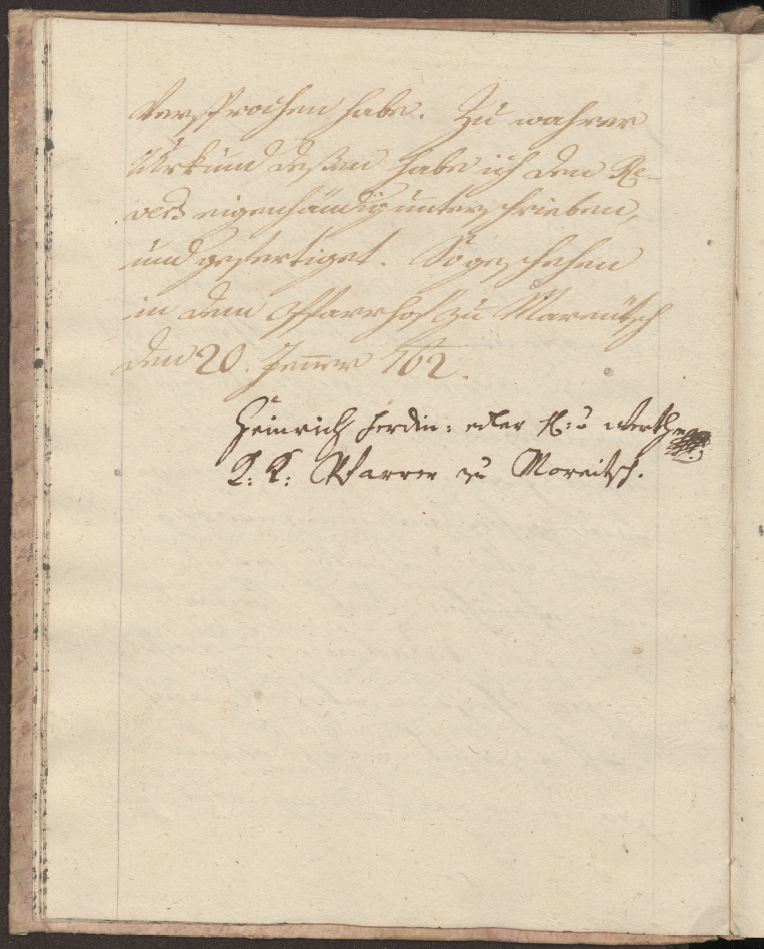 versprochen habe. Zu wahrer
Uhrkund deßen habe ich den Re-
vers eigenhändig unterschrieben,
und gefertiget. So geschehen
in dem Pfarrhof zu Mareütsch
den 20. Jenner 762.
Heinrich Ferdin: edler
K: K: Pfarrer zu Moreitsch.